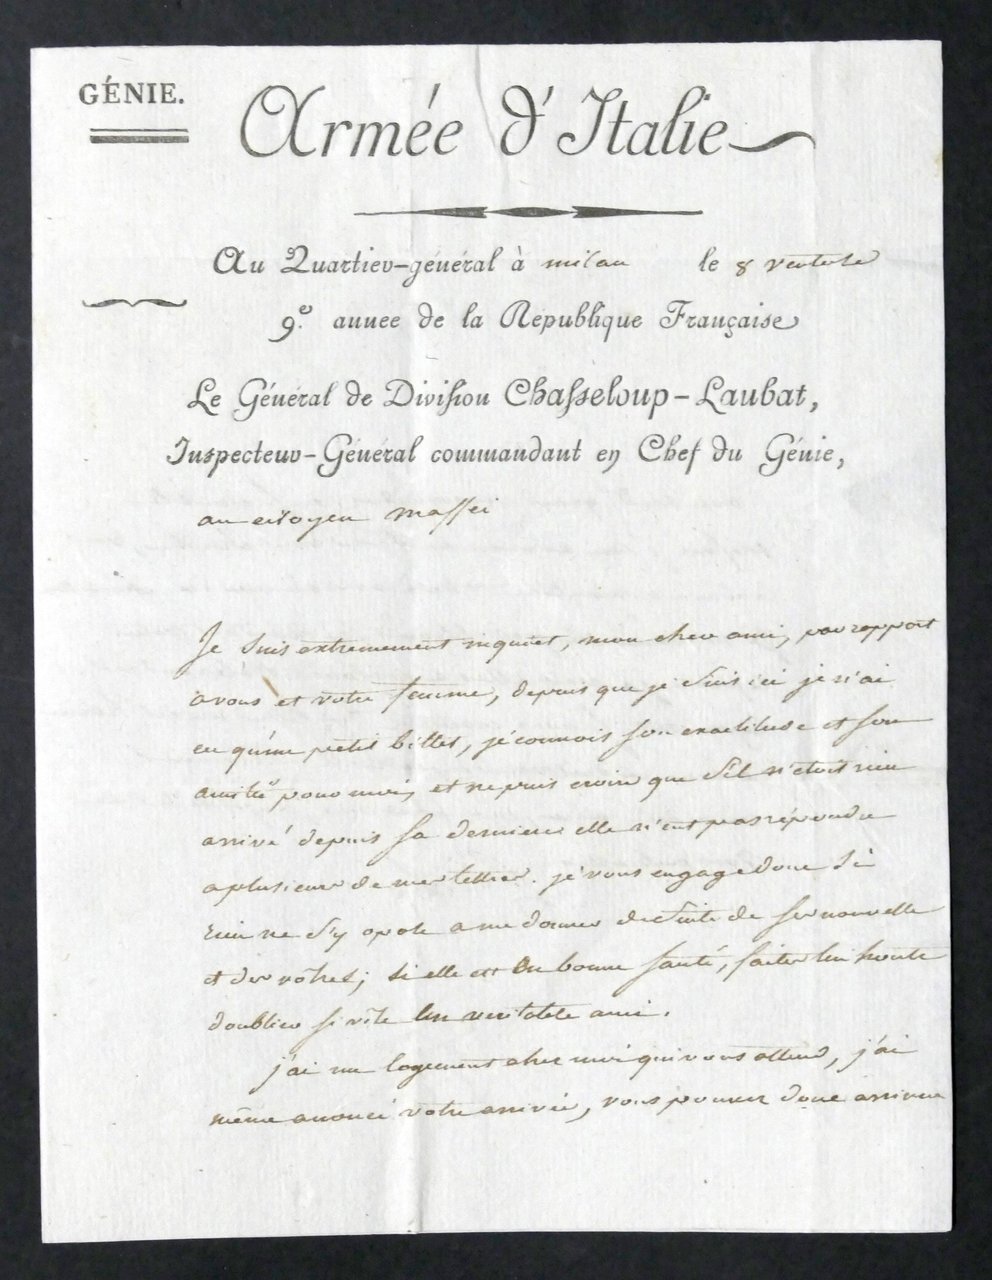 GÉNIE.
Armée d'Italie
Au Quartier-général à milan le 8 ventose
9.e année de la République Française
Le Général de Division Chasseloup-Laubat,
Inspecteur-Général commandant en Chef du Génie,
au citoyen massei
Je suis extremement inquiet, mon cher ami, par rapport
a vous et votre femme, depuis que je suis ici je n'ai
eu qu'un petit billet, je connois son exactitude et son
amitié pour moi, et ne puis croire que s'il n'étoit rien
arrivé depuis sa derniere elle n'eut pas répondu
a plusieurs de mes lettres. je vous engage donc si
rien ne s'y opose a me donner de suite de ses nouvelle
et des vôtres; si elle est en bonne santé, faites lui honte
d'oublier si vite un veritable ami.
j'ai un logement chez moi qui vous attend, j'ai
même anoncé votre arrivée, vous pouvez donc arriver